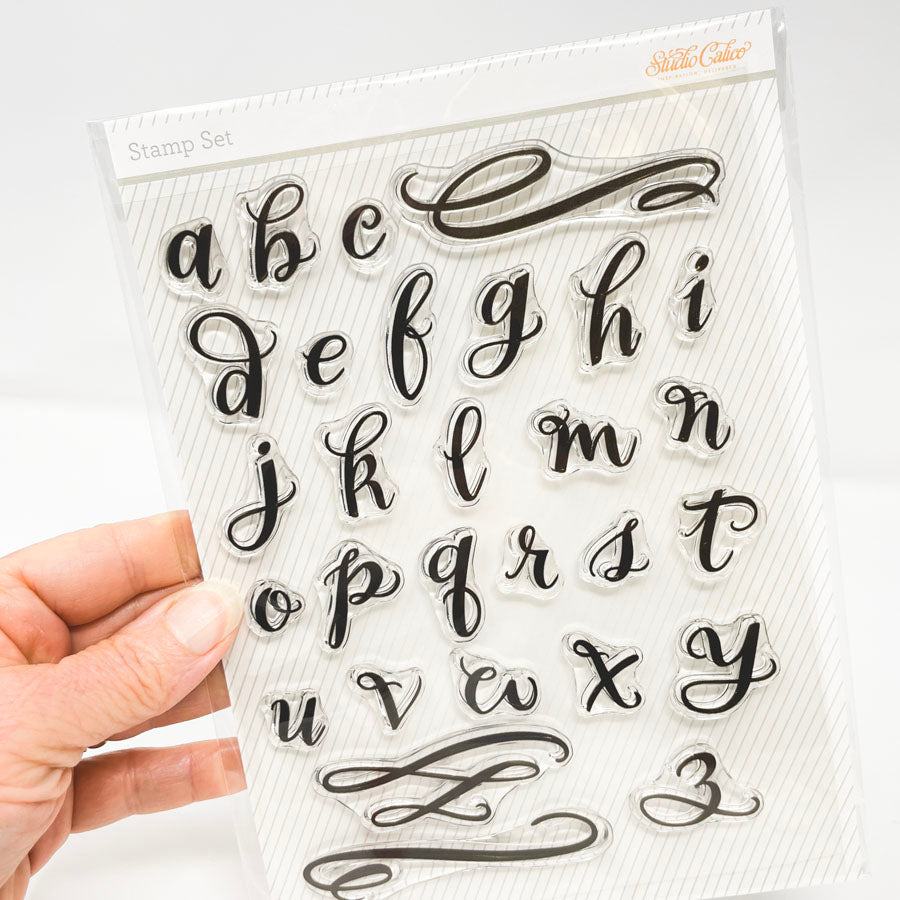 Studio Calico
INSPIRATION, DELIVERED
Stamp Set
a b c
d e f g h i
j k l m n
o p q r s t
u v w x y
z